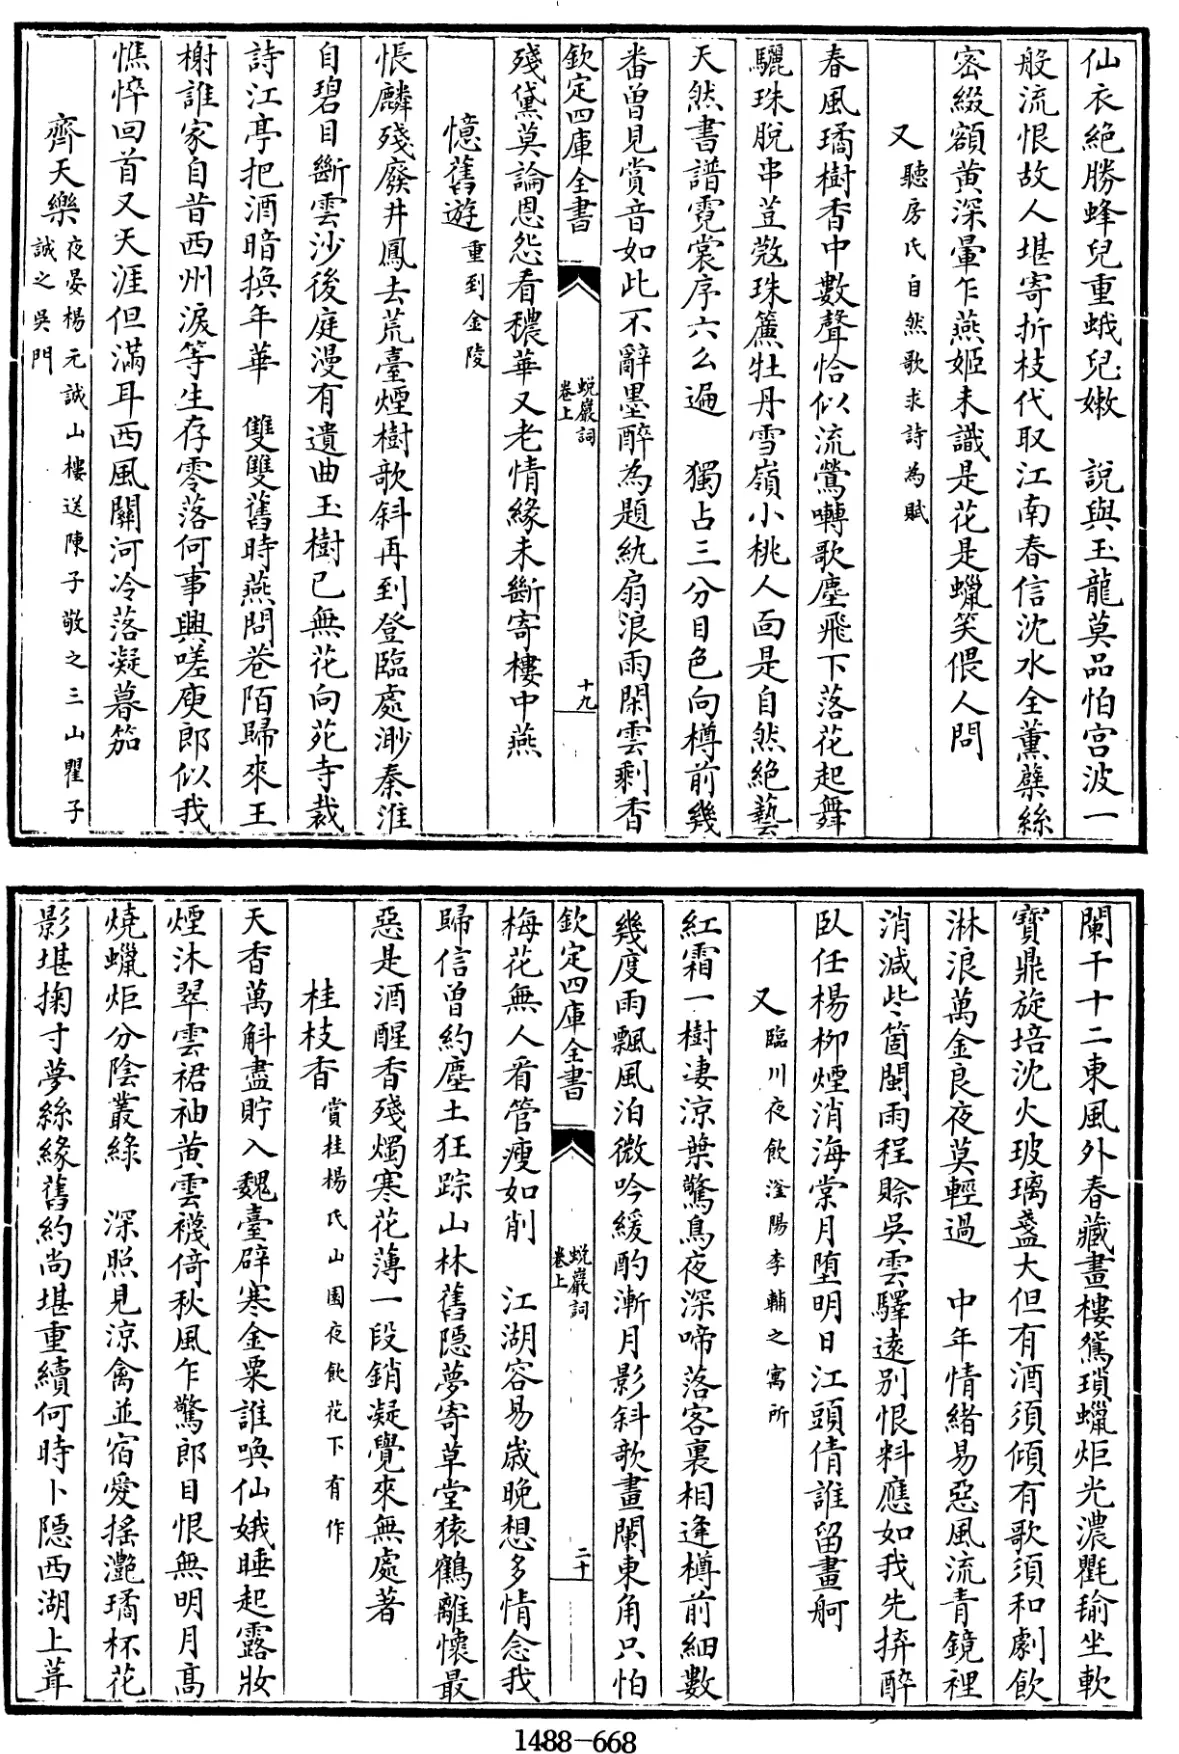 仙衣絶勝蜂兒重蛾兒嫩　說與玉龍莫品怕宮波一
般流恨故人堪寄折枝代取江南春信沈水全薰蘖絲
密綴額黃深暈乍燕姬未識是花是蠟笑偎人問
又聽房氏自然歌求詩為賦
春風璚樹香中數聲恰似流鶯囀歌塵飛下落花起舞
驪珠脫串荳蔻珠簾牡丹雪嶺小桃人面是自然絶藝
天然書譜霓裳序六么遍　獨占三分目色向樽前幾
番曽見賞音如此不辭墨醉為題紈扇浪雨閑雲剩香
欽定四庫全書
蛻巖詞
卷上
十九
殘黛莫論恩怨看穠華又老情緣未斷寄樓中燕
憶舊遊重到金陵
悵麟殘廢井鳳去荒臺煙樹歌斜再到登臨處渺秦淮
自碧目斷雲沙後庭漫有遺曲玉樹已無花向苑寺裁
詩江亭把酒暗換年華　雙雙舊時燕問巷陌歸來王
榭誰家自昔西州淚等生存零落何事興嗟庾郎似我
憔悴回首又天涯但滿耳西風關河冷落凝暮笳
齊天樂夜晏楊元誠山樓送陳子敬之三山瞿子
誠之吳門
闌干十二東風外春藏畫樓鴛瑣蠟炬光濃氍毹坐軟
寳鼎旋培沈火玻璃盞大但有酒須傾有歌須和劇飲
淋浪萬金良夜莫輕過　中年情緒易惡風流青鏡裡
消減些箇閩雨程賒吳雲驛遠別恨料應如我先拚醉
臥任楊柳煙消海棠月墮明日江頭倩誰留畫舸
又臨川夜飲滏陽李輔之寓所
紅霜一樹淒涼葉驚烏夜深啼落客裏相逢樽前細數
幾度雨飄風泊微吟緩酌漸月影斜欹畫闌東角只怕
欽定四庫全書
蛻巖詞
卷上
二十
梅花無人看管瘦如削　江湖容易嵗晚想多情念我
歸信曽約塵土狂踪山林舊隠夢寄草堂猿鶴離懷最
惡是酒醒香殘燭寒花薄一段銷凝覺來無處著
桂枝香賞桂楊氏山園夜飲花下有作
天香萬斛盡貯入魏臺辟寒金粟誰喚仙娥睡起露妝
煙沐翠雲裙袖黃雲襪倚秋風乍驚郎目恨無明月高
燒蠟炬分陰叢綠　深照見涼禽並宿愛搖灧璚杯花
影堪掬寸夢絲緣舊約尚堪重續何時卜隠西湖上葺
1488-668